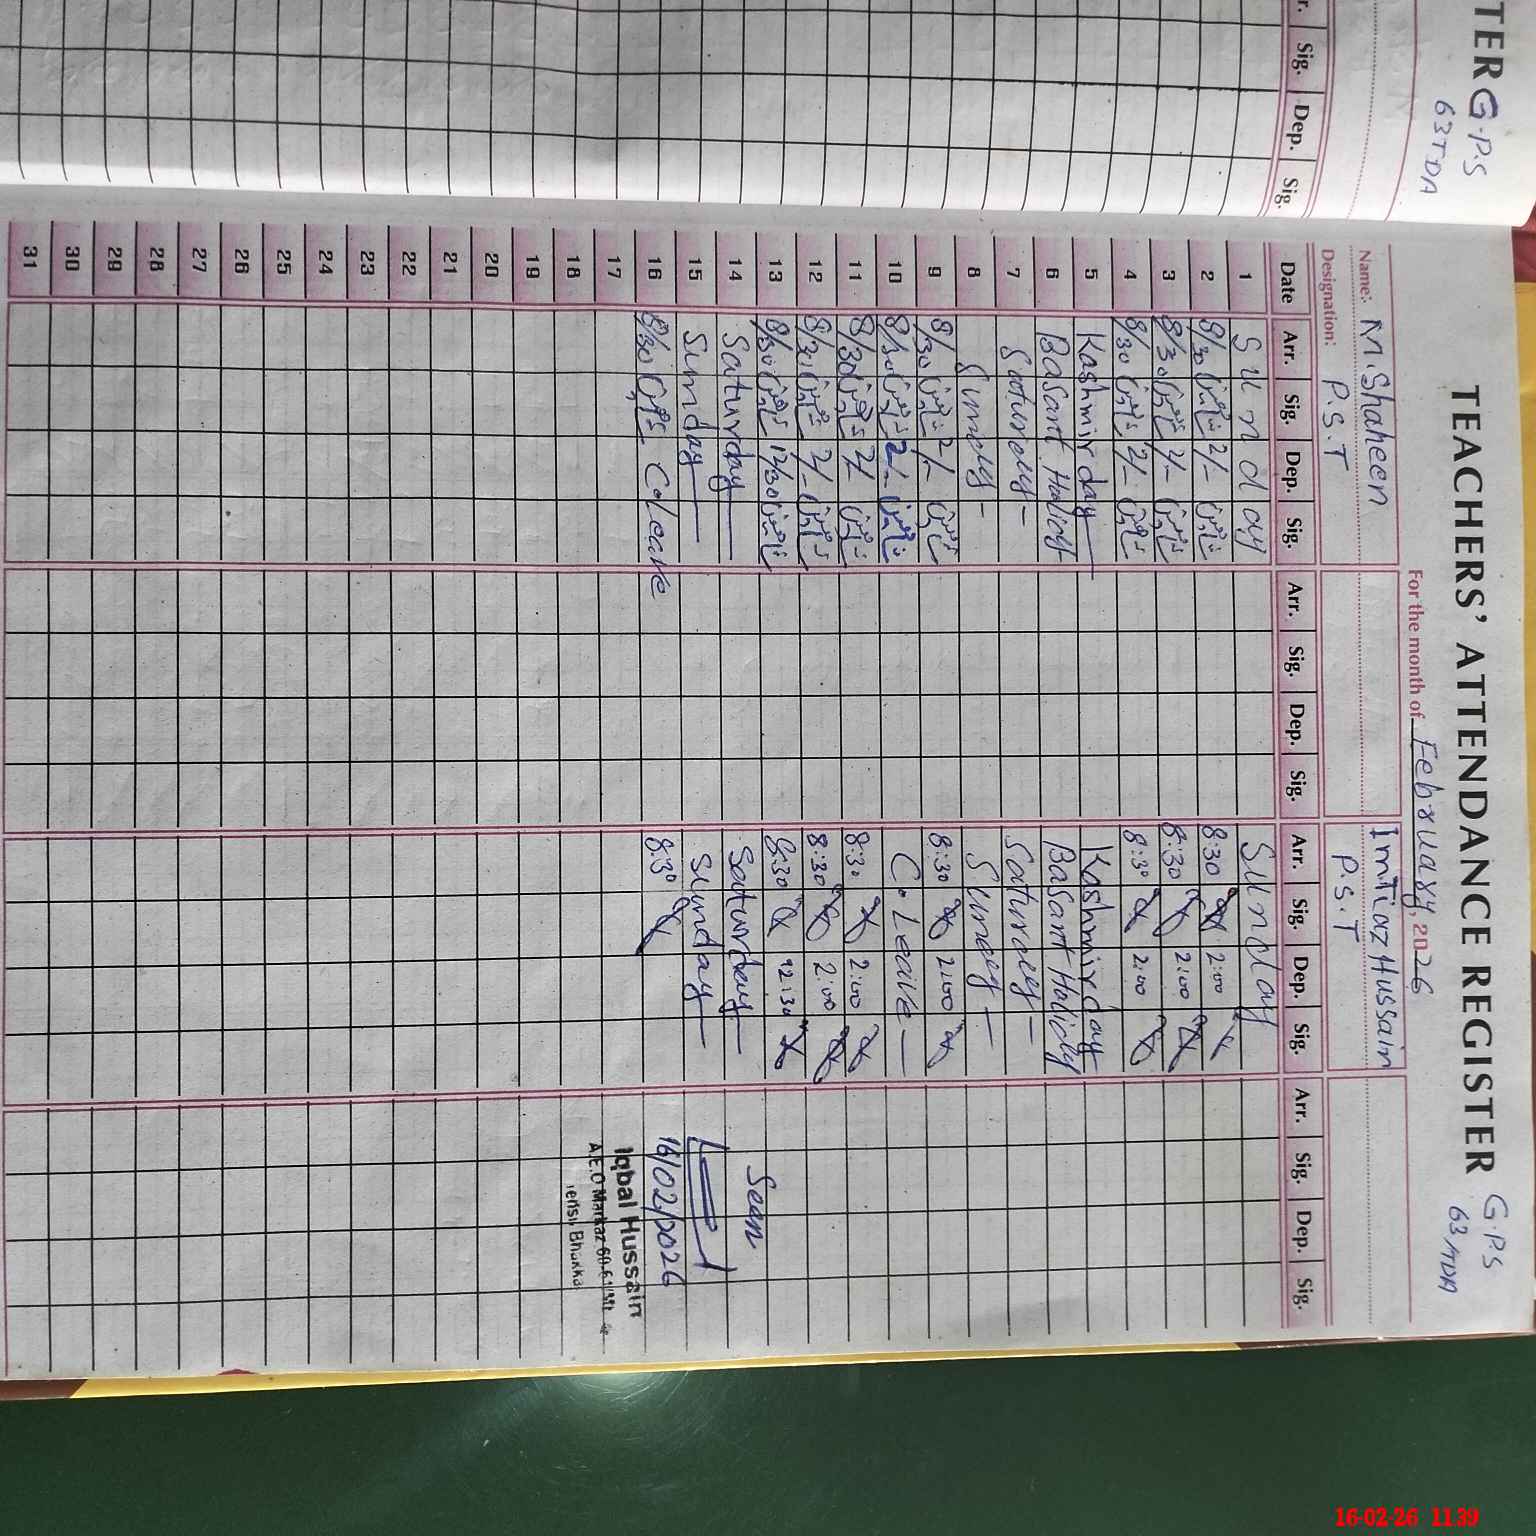 TER G.P.S
63TDA
r. Sig. Dep. Sig.
TEACHERS' ATTENDANCE REGISTER G.P.S
63/TDA
For the month of February, 2026
Name: M.Shaheen Imtiaz Hussain
Designation: P.S.T P.S.T
Date Arr. Sig. Dep. Sig. Arr. Sig. Dep. Sig. Arr. Sig. Dep. Sig. Arr. Sig. Dep. Sig.
1 Sunday Sunday
2 8/30 2/- 8:30 2:00
3 8/30 2/- 8:30 2:00
4 8/30 2/- 8:30 2:00
5 Kashmir day Kashmir day
6 Basant Holidy Basant Holidy
7 Saturday Saturday
8 Sunday Sunday
9 8/30 2/- 8:30 2:00
10 8/30 2/- C. Leave
11 8/30 2/- 8:30 2:00
12 8/30 2/- 8:30 2:00
13 8/30 12/30 8:30 12:30
14 Saturday Saturday Seen
15 Sunday Sunday
16 8/30 C.Leave 8:30 16/02/2026
17 Iqbal Hussain
A.E.O Markaz
18
19
20
21
22
23
24
25
26
27
28
29
30
31
16-02-26 11:39